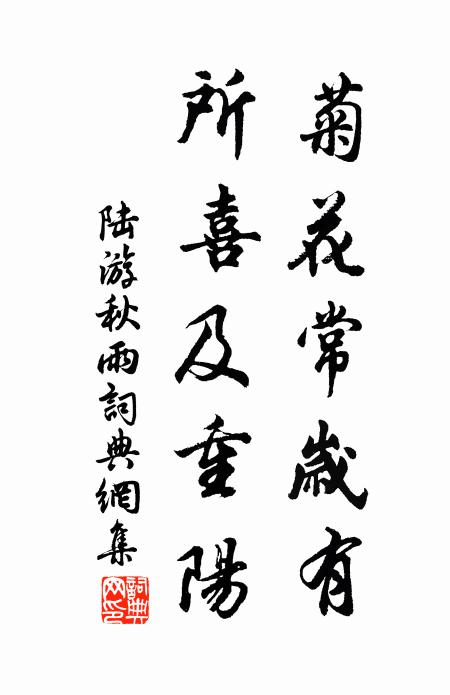 菊花常歲有
所喜及重陽
陆游秋雨詞典網集
詞典網印